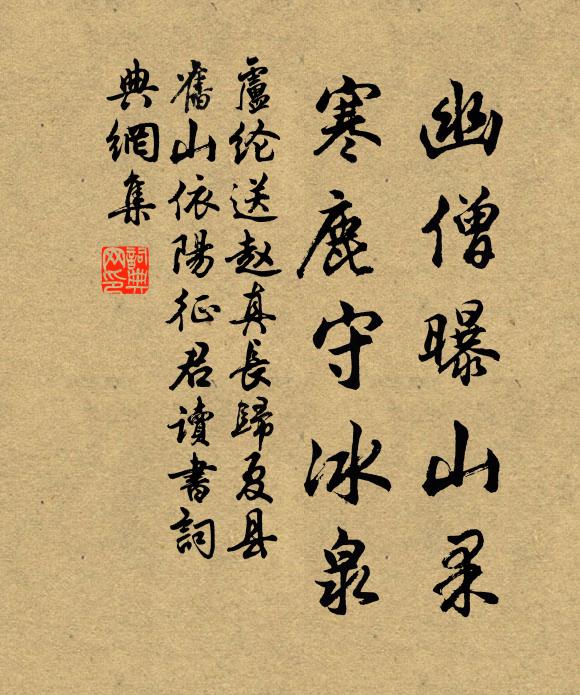 幽僧曝山果
寒鹿守冰泉
盧纶送趙真長歸夏县
舊山依陽征君讀書詞
典網集
詞典网印